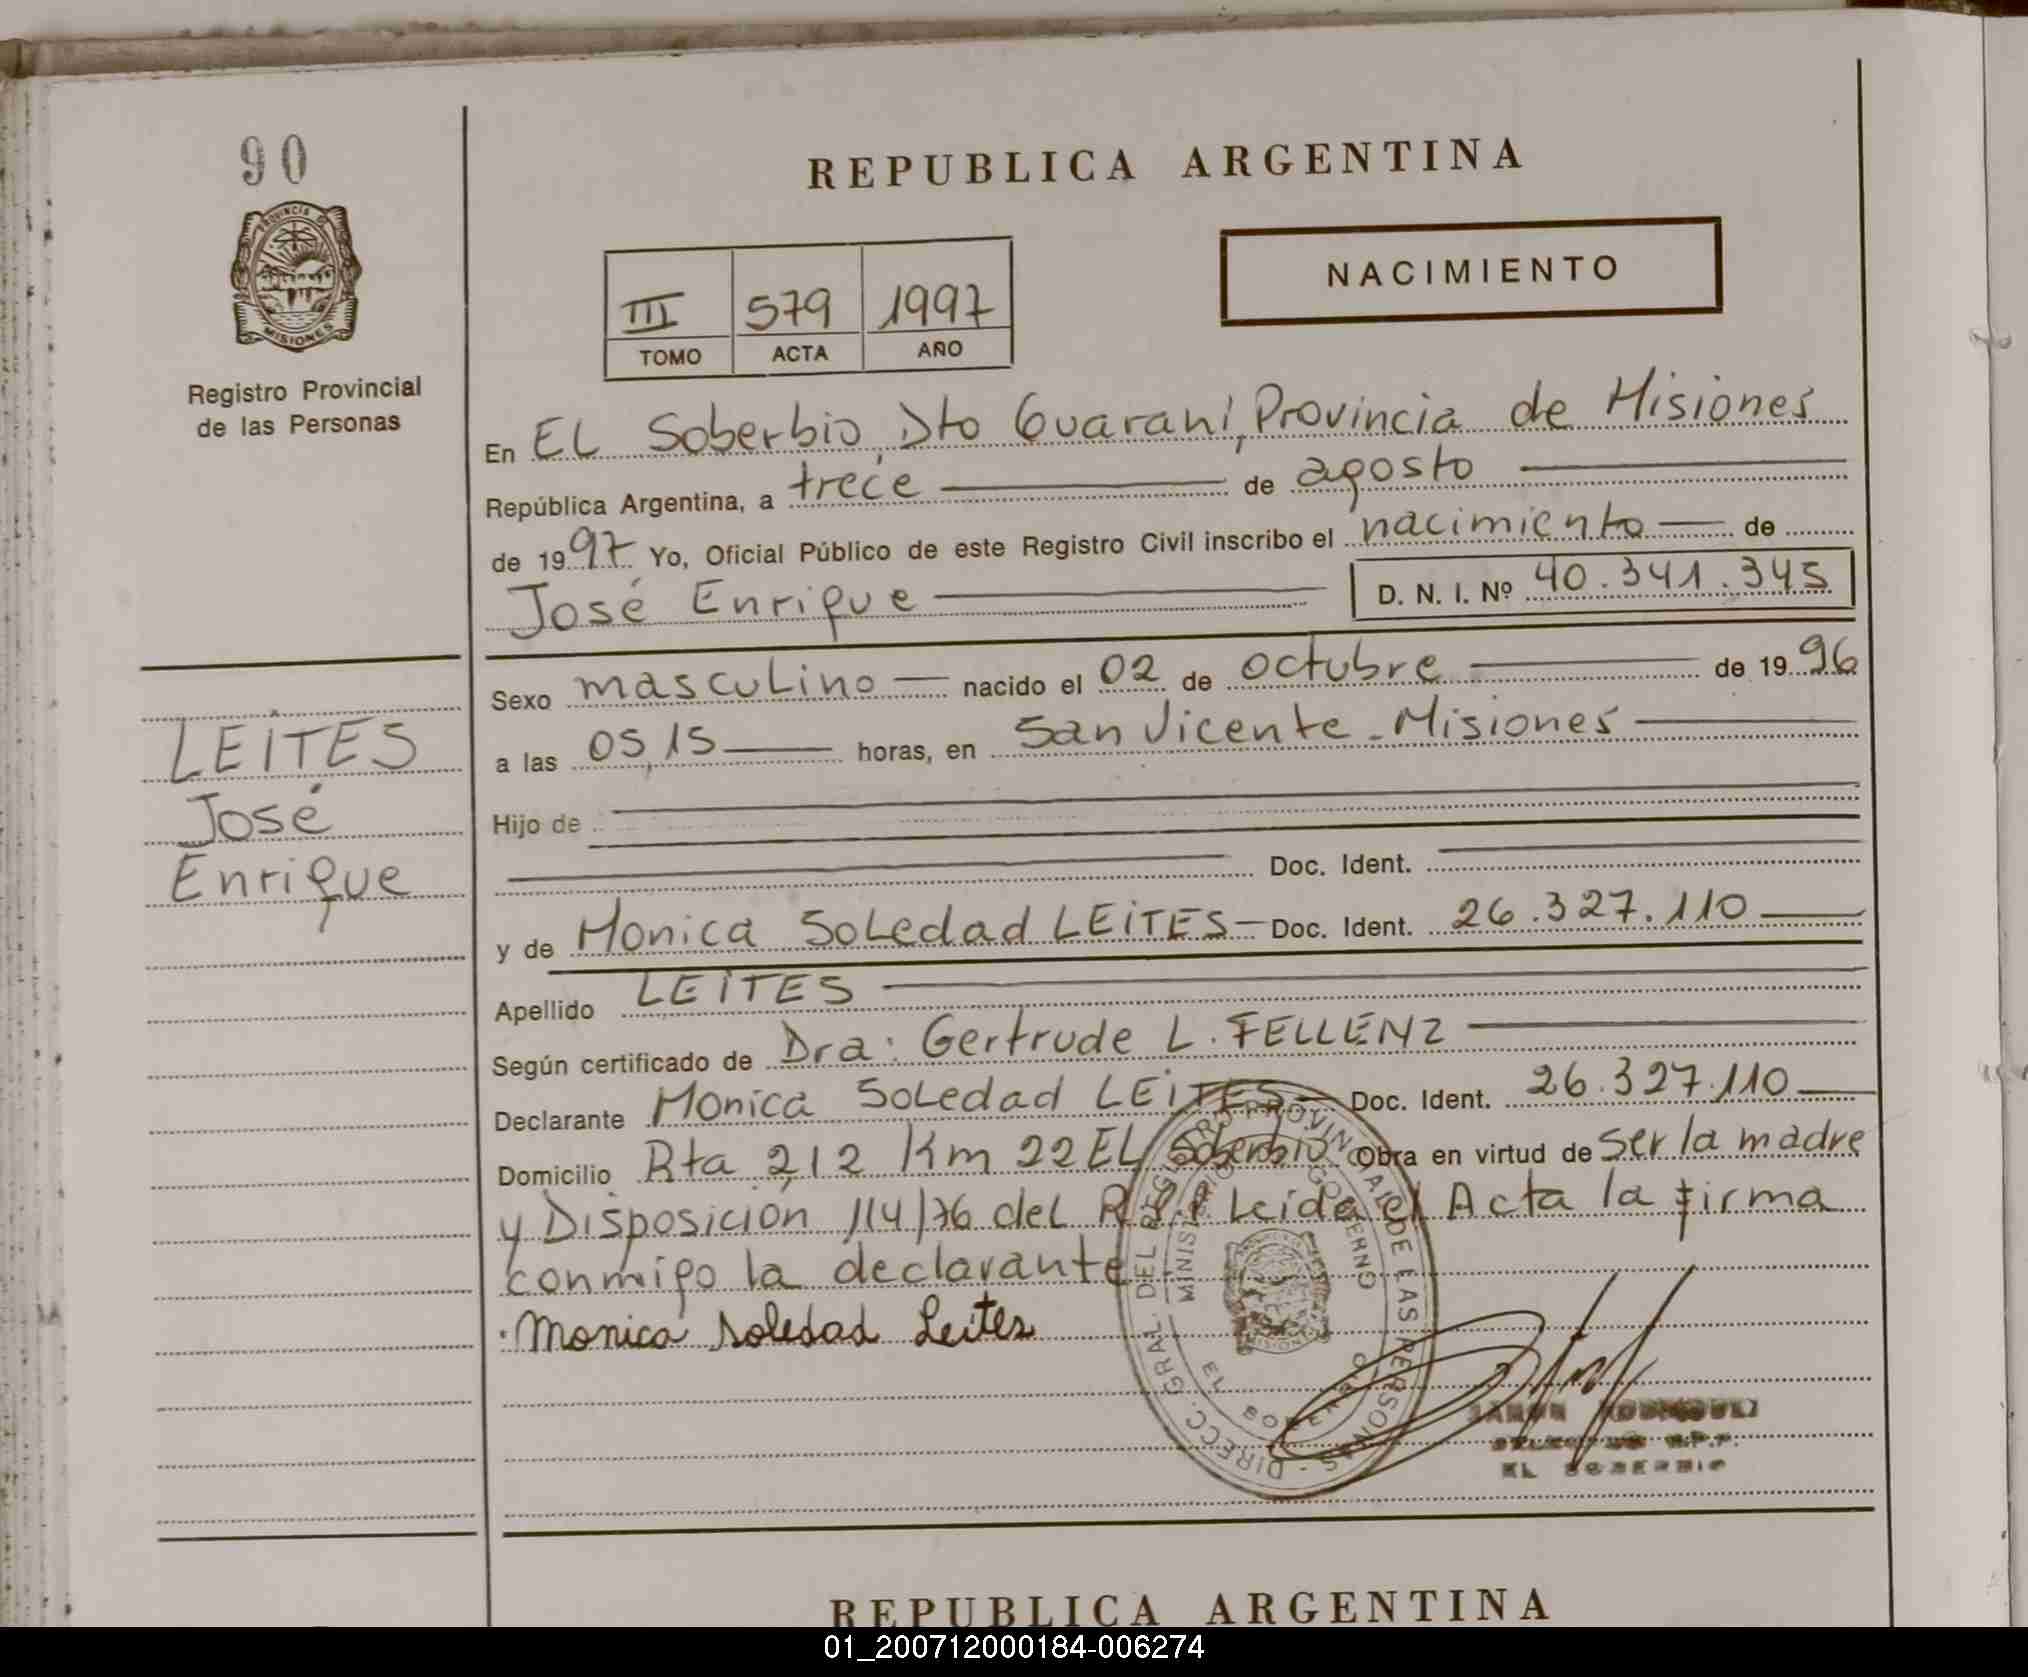 90
PROVINCIA DE
MISIONES
Registro Provincial
de las Personas
LEITES
José
Enrique
REPUBLICA ARGENTINA
III 579 1997
TOMO ACTA AÑO
NACIMIENTO
En EL Soberbio, Dto Guaraní, Provincia de Misiones
República Argentina, a trece de agosto
de 1997 Yo, Oficial Público de este Registro Civil inscribo el nacimiento de
José Enrique D. N. I. Nº 40.341.345
Sexo masculino nacido el 02 de octubre de 1996
a las 05,15 horas, en San Vicente - Misiones
Hijo de
Doc. Ident.
y de Monica Soledad LEITES Doc. Ident. 26.327.110
Apellido LEITES
Según certificado de Dra: Gertrude L. FELLENZ
Declarante Monica Soledad LEITES Doc. Ident. 26.327.110
Domicilio Rta 212 Km 22 EL Soberbio Obra en virtud de ser la madre
y Disposición 114/76 del R.P.P Leída el Acta la firma
conmigo la declarante
Monica Soledad Leites
DIRECC. GRAL. DEL REGISTRO PROVINCIAL DE LAS PERSONAS
MINISTERIO GOBIERNO
EL SOBERBIO
MISIONES
R.P.P.
EL SOBERBIO
REPUBLICA ARGENTINA
01_200712000184-006274